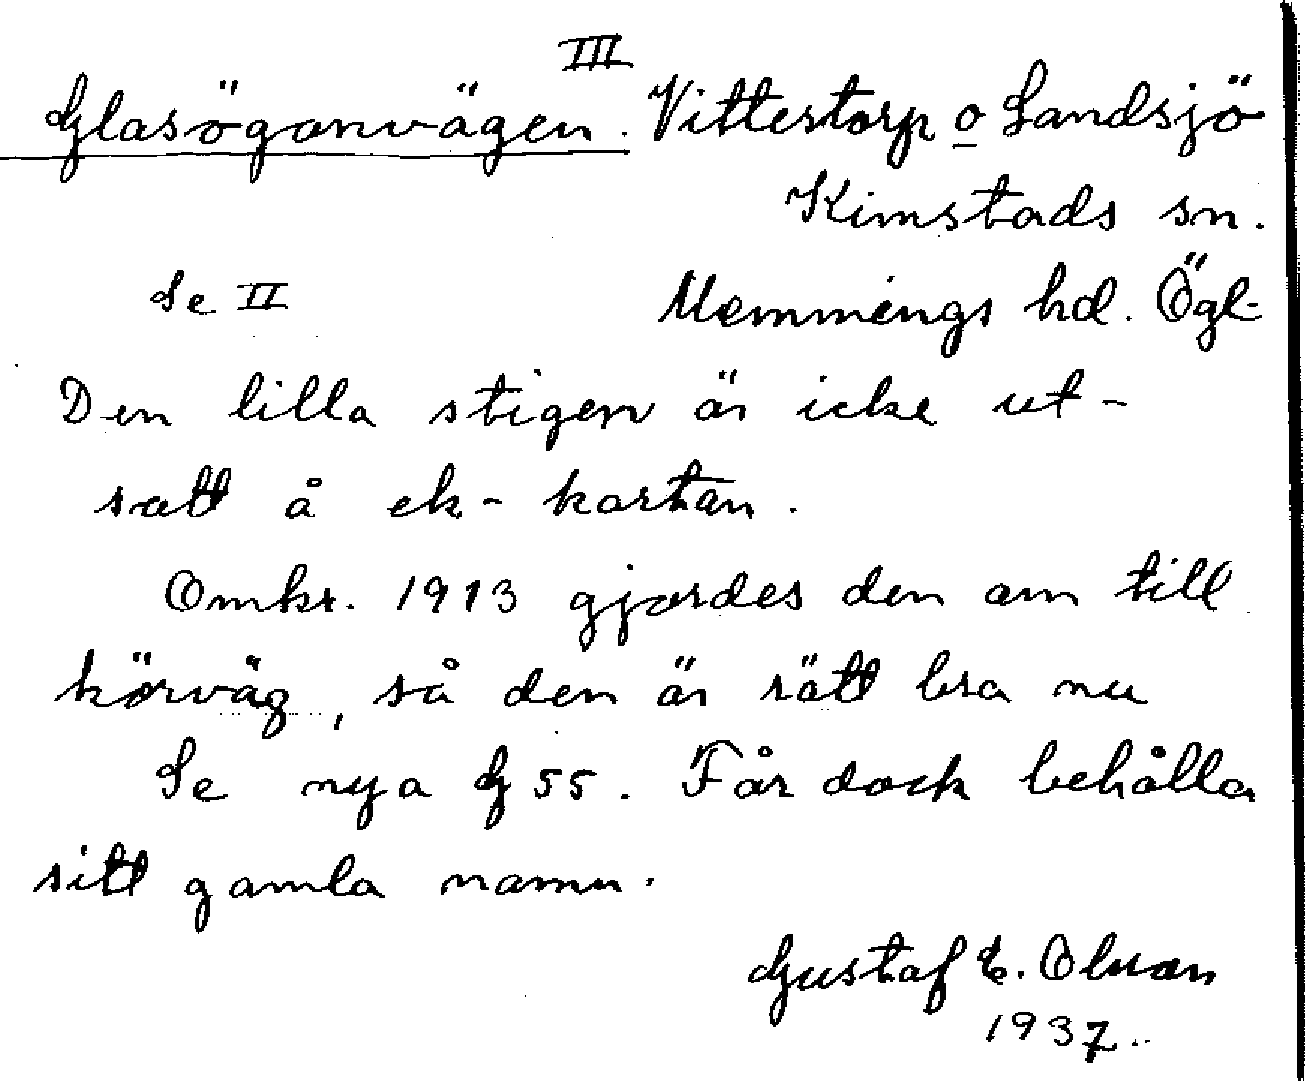 III
Glasögonvägen. Vittestorp o Landsjö
Kimstads sn.
Se II Memmings hd. Ögl.
Den lilla stigen är icke ut-
satt å ek-kartan.
Omkr. 1913 gjordes den om till
körväg, så den är rätt bra nu
Se nya G 55. Får dock behålla
sitt gamla namn.
Gustaf E. Olsson
1937.